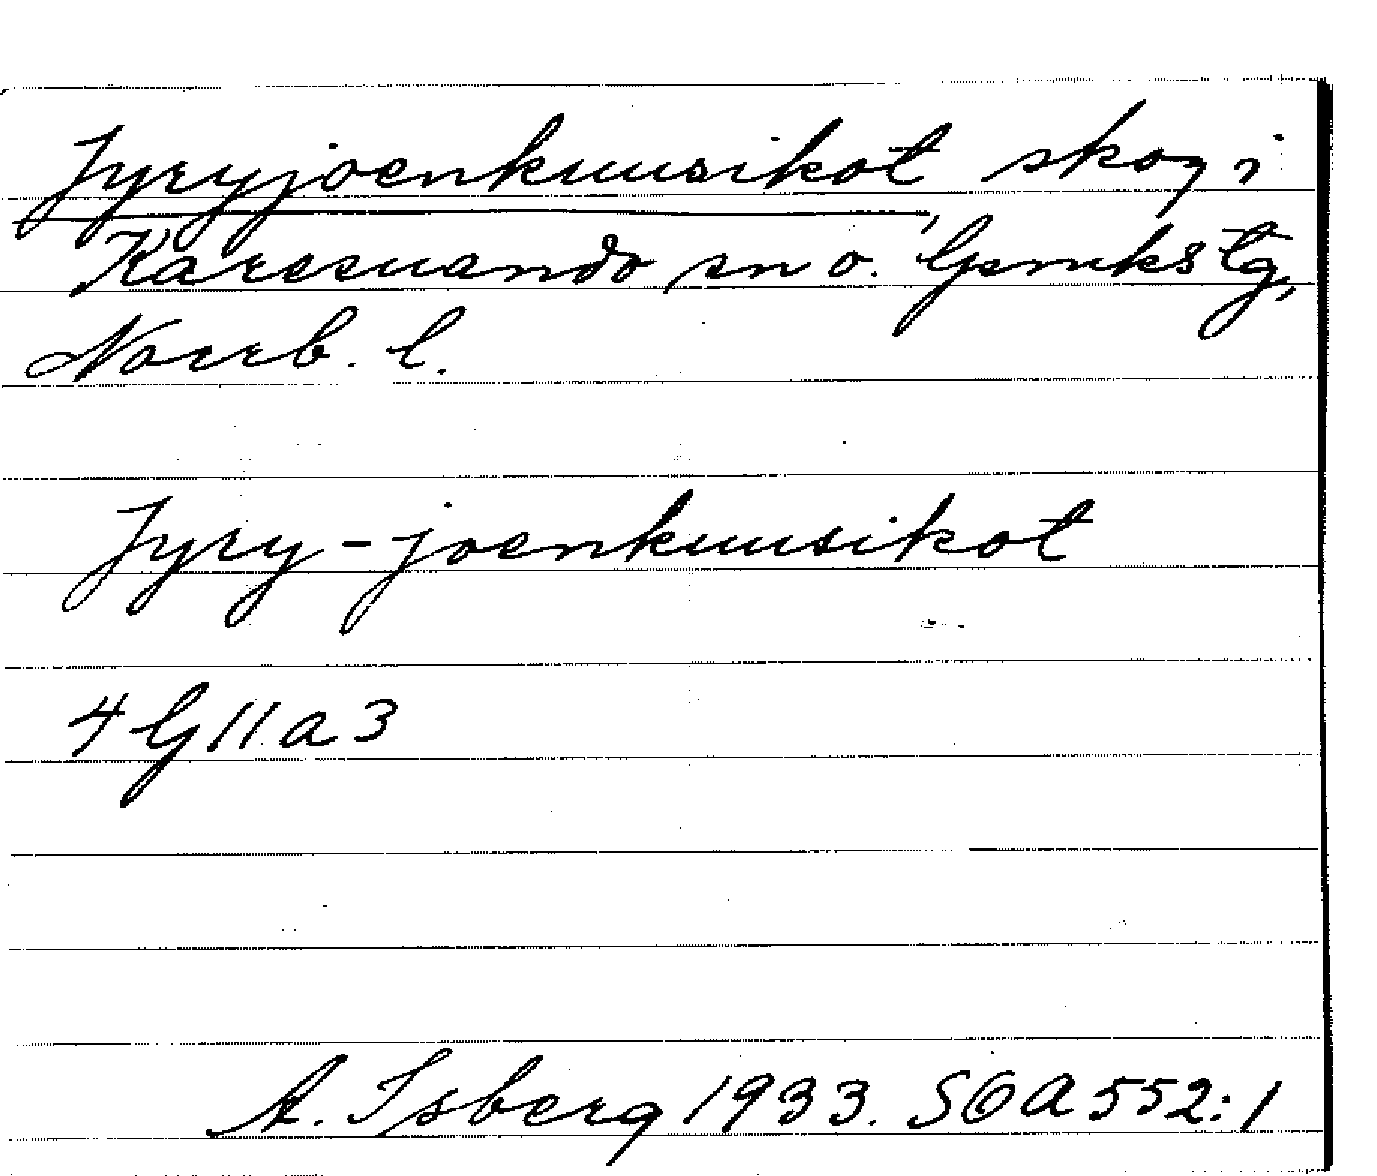 Jyryjoenkuusikot skog i
Karesuando sn o. lpmkstg,
Norrb. l.
Jyry-joenkuusikot
4 G 11 a 3
A. Isberg 1933. SOA 552:1